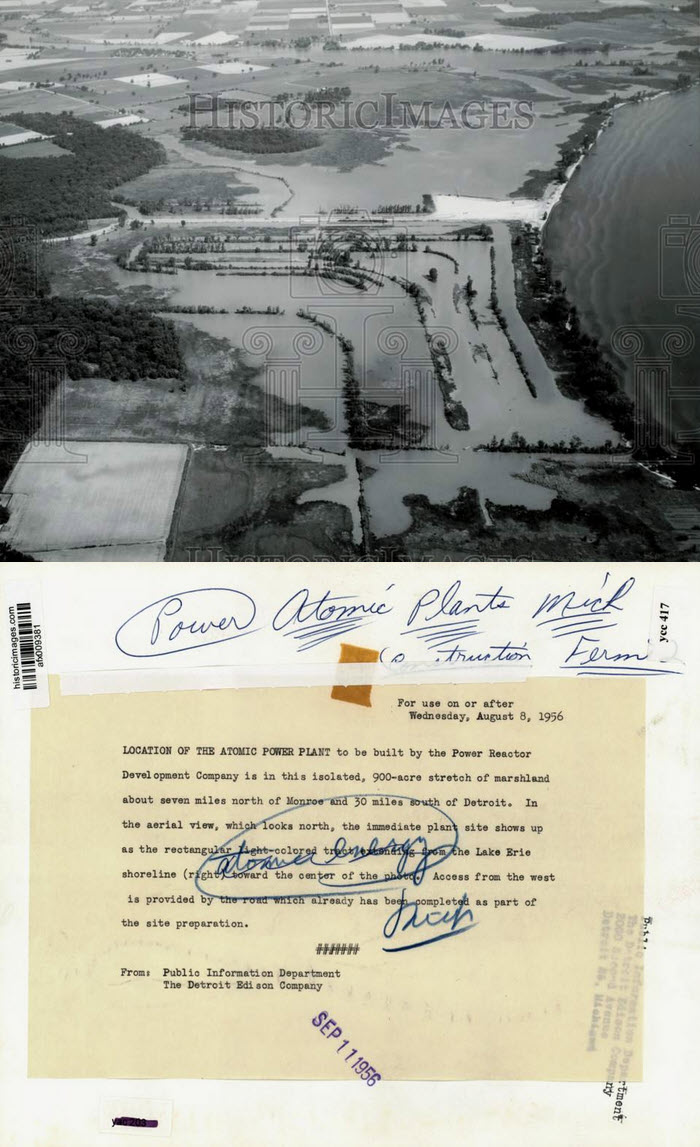 HISTORICIMAGES
HISTORICIMAGES
historicimages.com
afx009381
Power Atomic Plants Mich
Construction Fermi 2
ycc 417
For use on or after
Wednesday, August 8, 1956
LOCATION OF THE ATOMIC POWER PLANT to be built by the Power Reactor
Development Company is in this isolated, 900-acre stretch of marshland
about seven miles north of Monroe and 30 miles south of Detroit. In
the aerial view, which looks north, the immediate plant site shows up
as the rectangular light-colored tract extending from the Lake Erie
shoreline (right) toward the center of the photo. Access from the west
is provided by the road which already has been completed as part of
the site preparation.
atomic energy
Mich
#######
From: Public Information Department
The Detroit Edison Company
SEP 11 1956
Public Information Department
The Detroit Edison Company
2000 Second Avenue
Detroit 26, Michigan